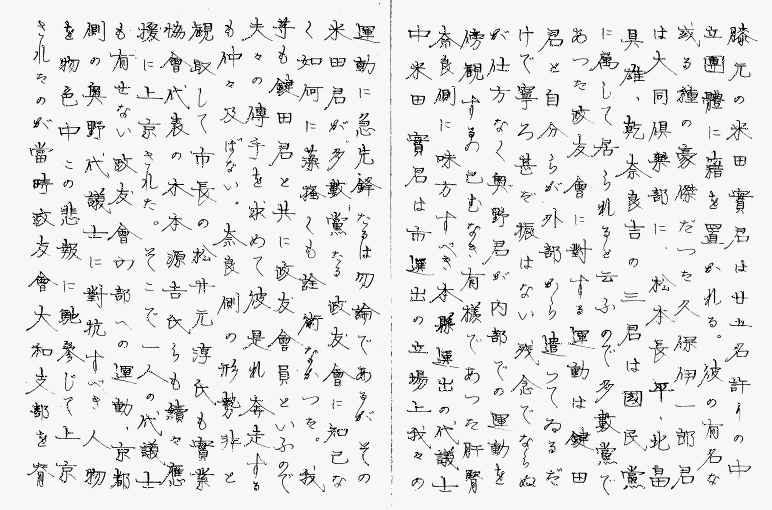 膝元の米田實君は廿五名許りの中
立團體に籍を置かれる。彼の有名な
或る種の豪傑だつた久保伊一郎君
は大同倶樂部に、松本長平、北畠
具雄、乾奈良吉の三君は國民黨
に属して居られると云ふので多數黨で
あつた政友會に対する運動は鍵田
君と自分らが外部から遣つてゐるだ
けで寧ろ甚だ振はない残念でならぬ
が仕方なく奥野君が内部での運動を
傍観するの已むなき有様であつた肝腎
奈良側に味方すべき本縣選出の代議士
中米田實君は市選出の立場上我々の
運動に急先鋒たるは勿論であるがその
米田君が多數黨たる政友會に知己な
く如何に藻掻くも詮術なかつた。我
等も鍵田君と共に政友會員といふので
夫々の傳手を求めて彼是れ奔走する
も仲々及ばない。奈良側の形勢非と
観取して市長の松井元淳氏も實業
協會代表の木本源吉氏らも續々應
援に上京された。そこで一人の代議士
も有せない政友會内部への運動、京都
側の奥野代議士に對抗すべき人物
を物色中この悲報に馳参じて上京
されたのが當時政友會大和支部を脊